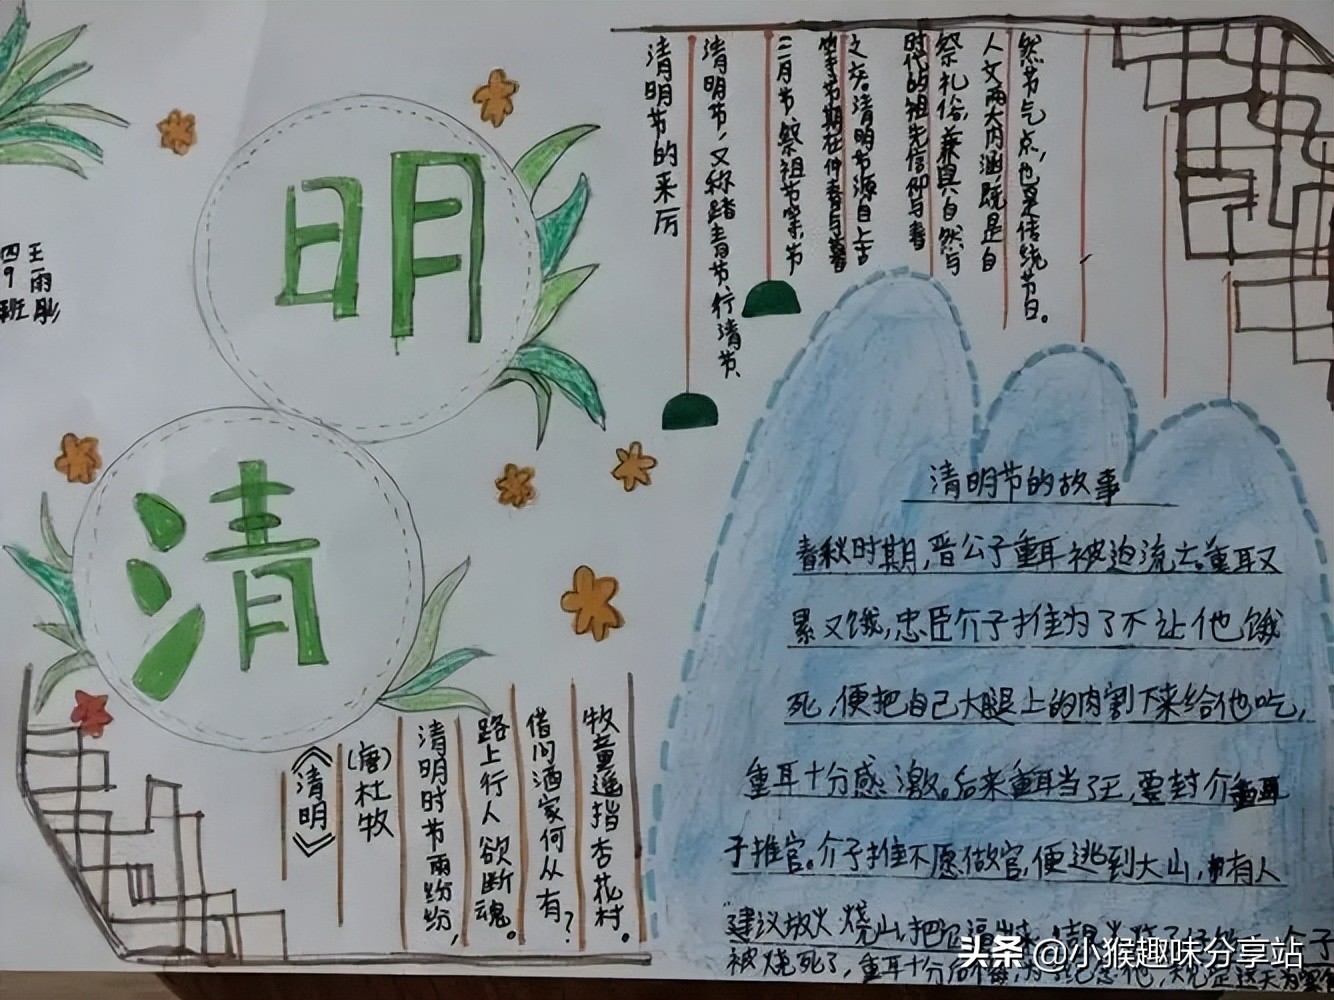 明
清
四9班
王雨彤
清明节的来厉
清明节,又称踏青节、行清节、
三月节、祭祖节等,节
等节期在仲春与暮
之交。清明节源自上古
时代的祖先信仰与春
祭礼俗,兼具自然与
人文两大内涵,既是自
然节气点,也是传统节日。
《清明》
(唐)杜牧
清明时节雨纷纷,
路上行人欲断魂。
借问酒家何从有?
牧童遥指杏花村。
清明节的故事
春秋时期,晋公子重耳被迫流亡。重耳又
累又饿,忠臣介子推为了不让他饿
死,便把自己大腿上的肉割下来给他吃,
重耳十分感激。后来重耳当了王,要封介
子推官。介子推不愿做官,便逃到大山,有人
建议放火烧山,把
被烧死了,重耳十分后悔,为了纪念他,规定这天为
头条 @小猴趣味分享站